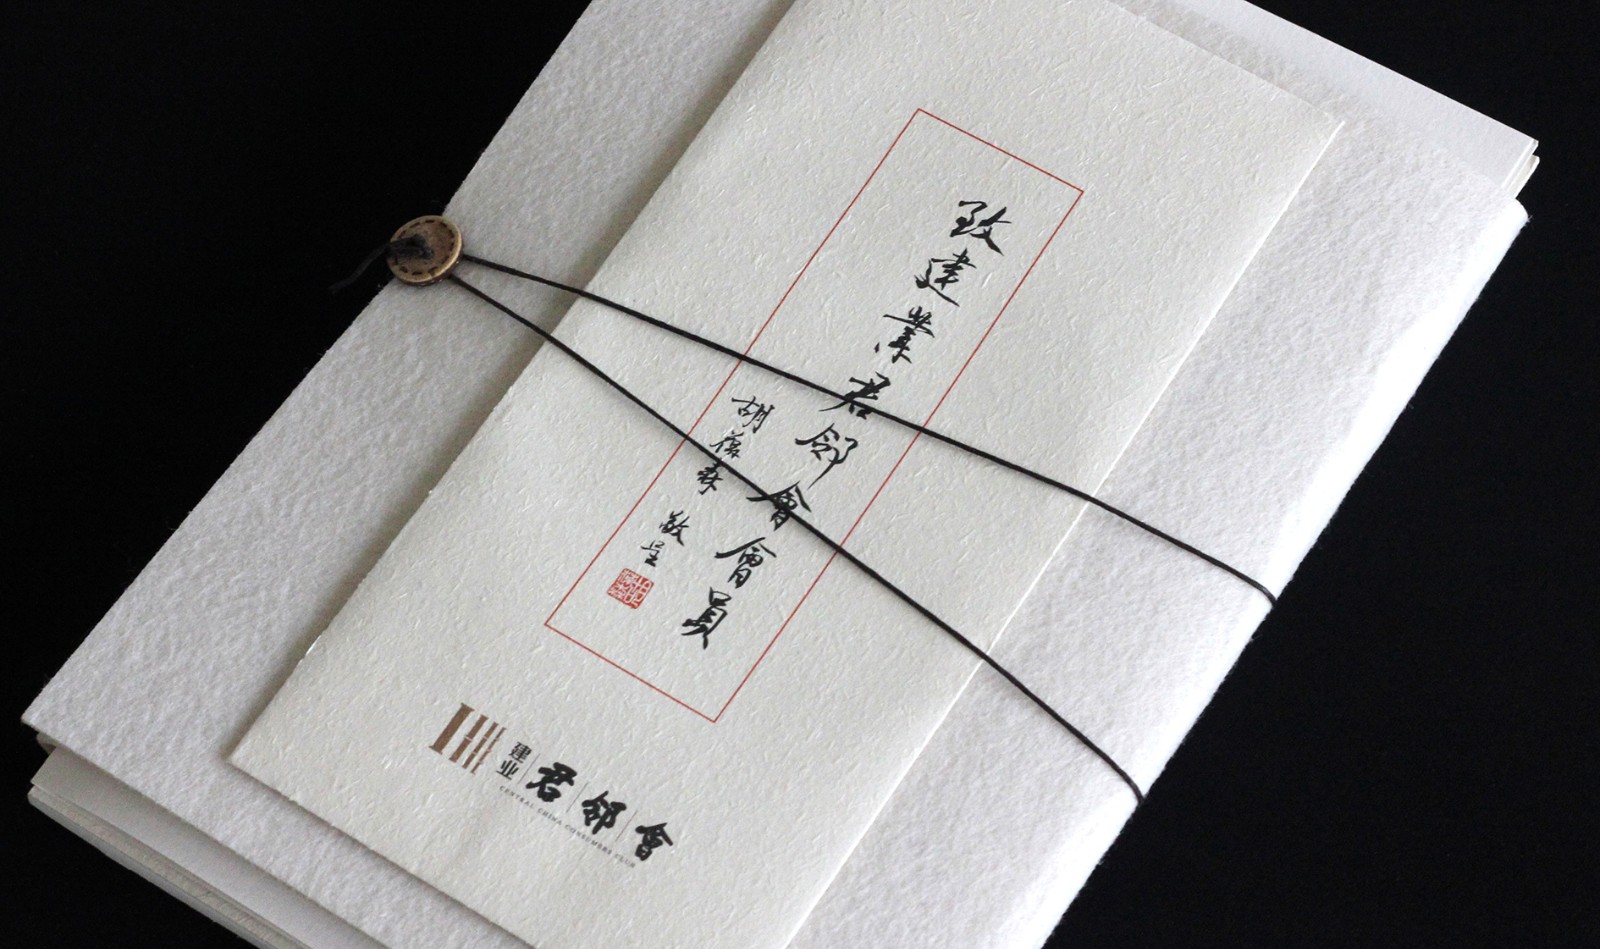 致建業君邻會會員
胡葆森 敬呈
建业 君邻會
CENTRAL CHINA CONSUMERS CLUB